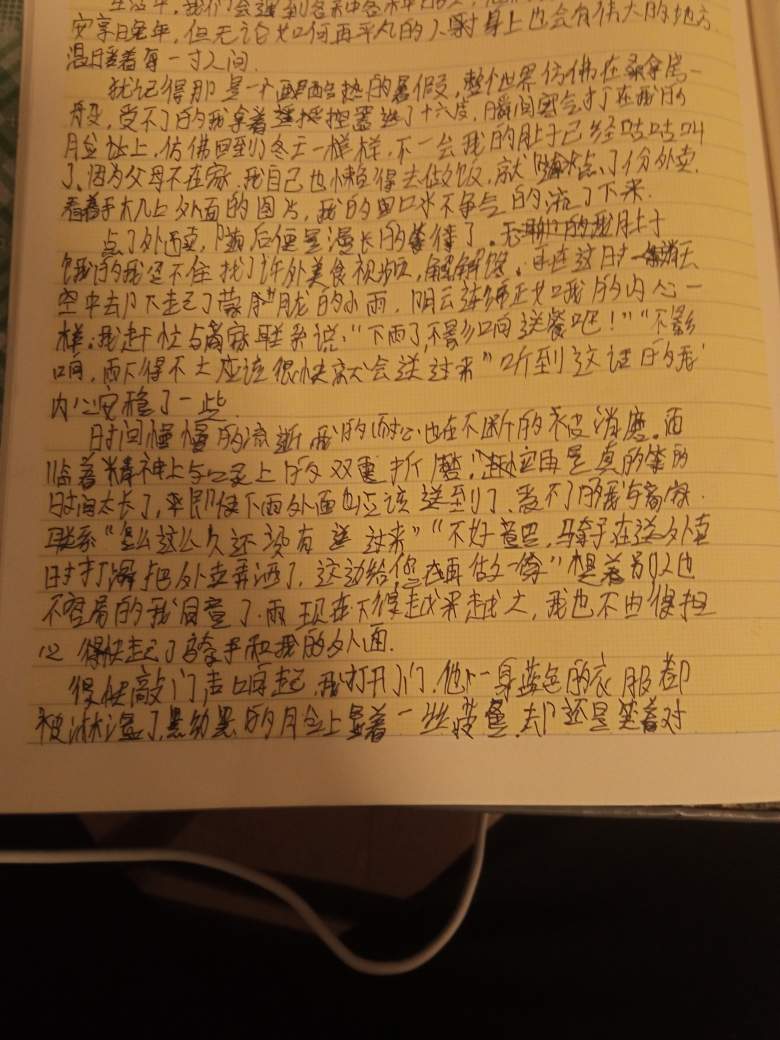 生活中,我们会遇到各种各样的人,
安享晚年,但无论如何再平凡的人身上也会有伟大的地方
温暖着每一寸人间.
犹记得那是一个酷热的暑假,整个世界仿佛在桑拿房一
般,受不了的我拿着遥控器调了十六度,瞬间空气打在我的
脸上,仿佛回到了冬天一样样,不一会我的肚子已经咕咕叫
了,因为父母不在家,我自己也懒得去做饭,就点了份外卖,
看着手机上外面的图片,我的口水不争气的流了下来.
点了外卖,随后便是漫长的等待了。无聊的我肚子
饿的我忍不住找了许外美食视频,解解馋,正在这时
空中却下起了蒙蒙胧的小雨,阴云连绵正如我的内心一
样,我赶忙与商家联系说:“下雨了,不影响送餐吧!”“不影
响,雨下得不大应该很快就会送过来”听到这话的我
内心安稳了一些.
时间慢慢的流逝我的耐心也在不断的被消磨,面
临着精神上与口足上的双重折磨,再是真的等的
时间太长了,平即使下雨外面也应该送到了,受不了的我与商家
联系“怎么这么久还没有送过来”“不好意思,骑手在送外卖
时打滑把外卖弄洒了,这边给您再做一份”想着别人也
不容易的我同意了.雨现在下得越来越大,我也不由得担
心得快起了骑手和我的外面.
很快敲门声响起,我打开门,他一身蓝色的衣服却
被淋湿了,黑幼黑的脸上显着一丝疲惫,却还是笑着对